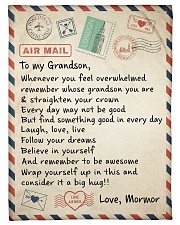 AIR MAIL
To my Grandson,
Whenever you feel overwhelmed
remember whose grandson you are
& straighten your crown
Every day may not be good
But find something good in every day
Laugh, love, live
Follow your dreams
Believe in yourself
And remember to be awesome
Wrap yourself up in this and
consider it a big hug!!
Love, Mormor